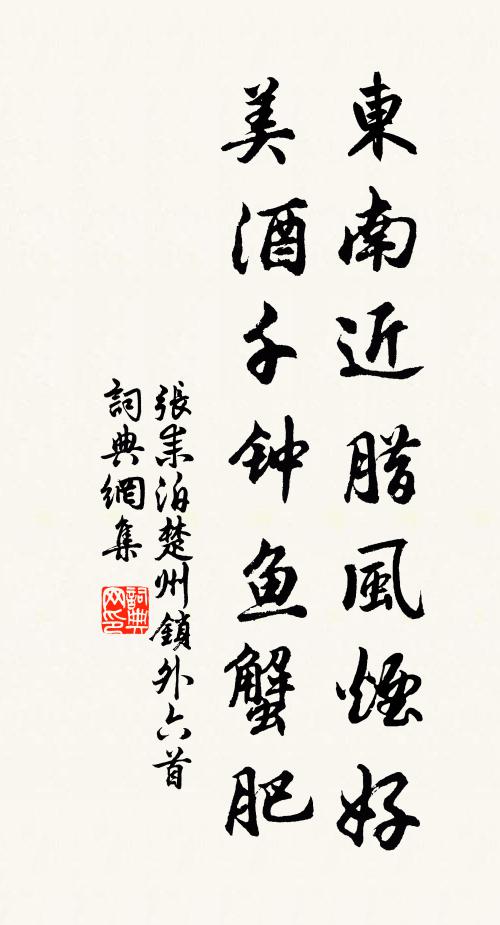 東南近腊風煙好
美酒千钟鱼蟹肥
張耒泊楚州鎖外六首
詞典網集
詞典网印